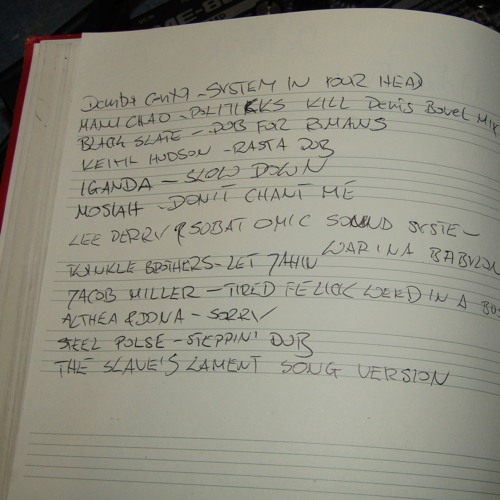 SYSTEM IN YOUR HEAD
MANU CHAO - POLITIKKS KILL Denis Bovel MIX
BLACK SLATE - DUB FOR BMANS
KEITH HUDSON - RASTA DUB
IGANDA - SLOW DOWN
MOSIAH - DON'T CHANT ME
LEE PERRY & SUBATOMIC SOUND SYSTE -
WAR INA BABYLON
TWINKLE BROTHERS - LET JAHIN
JACOB MILLER - TIRED FE LICK WEED IN A BUS
ALTHEA & DONA - SORRY
STEEL PULSE - STEPPIN' DUB
THE SLAVE'S LAMENT SONG VERSION